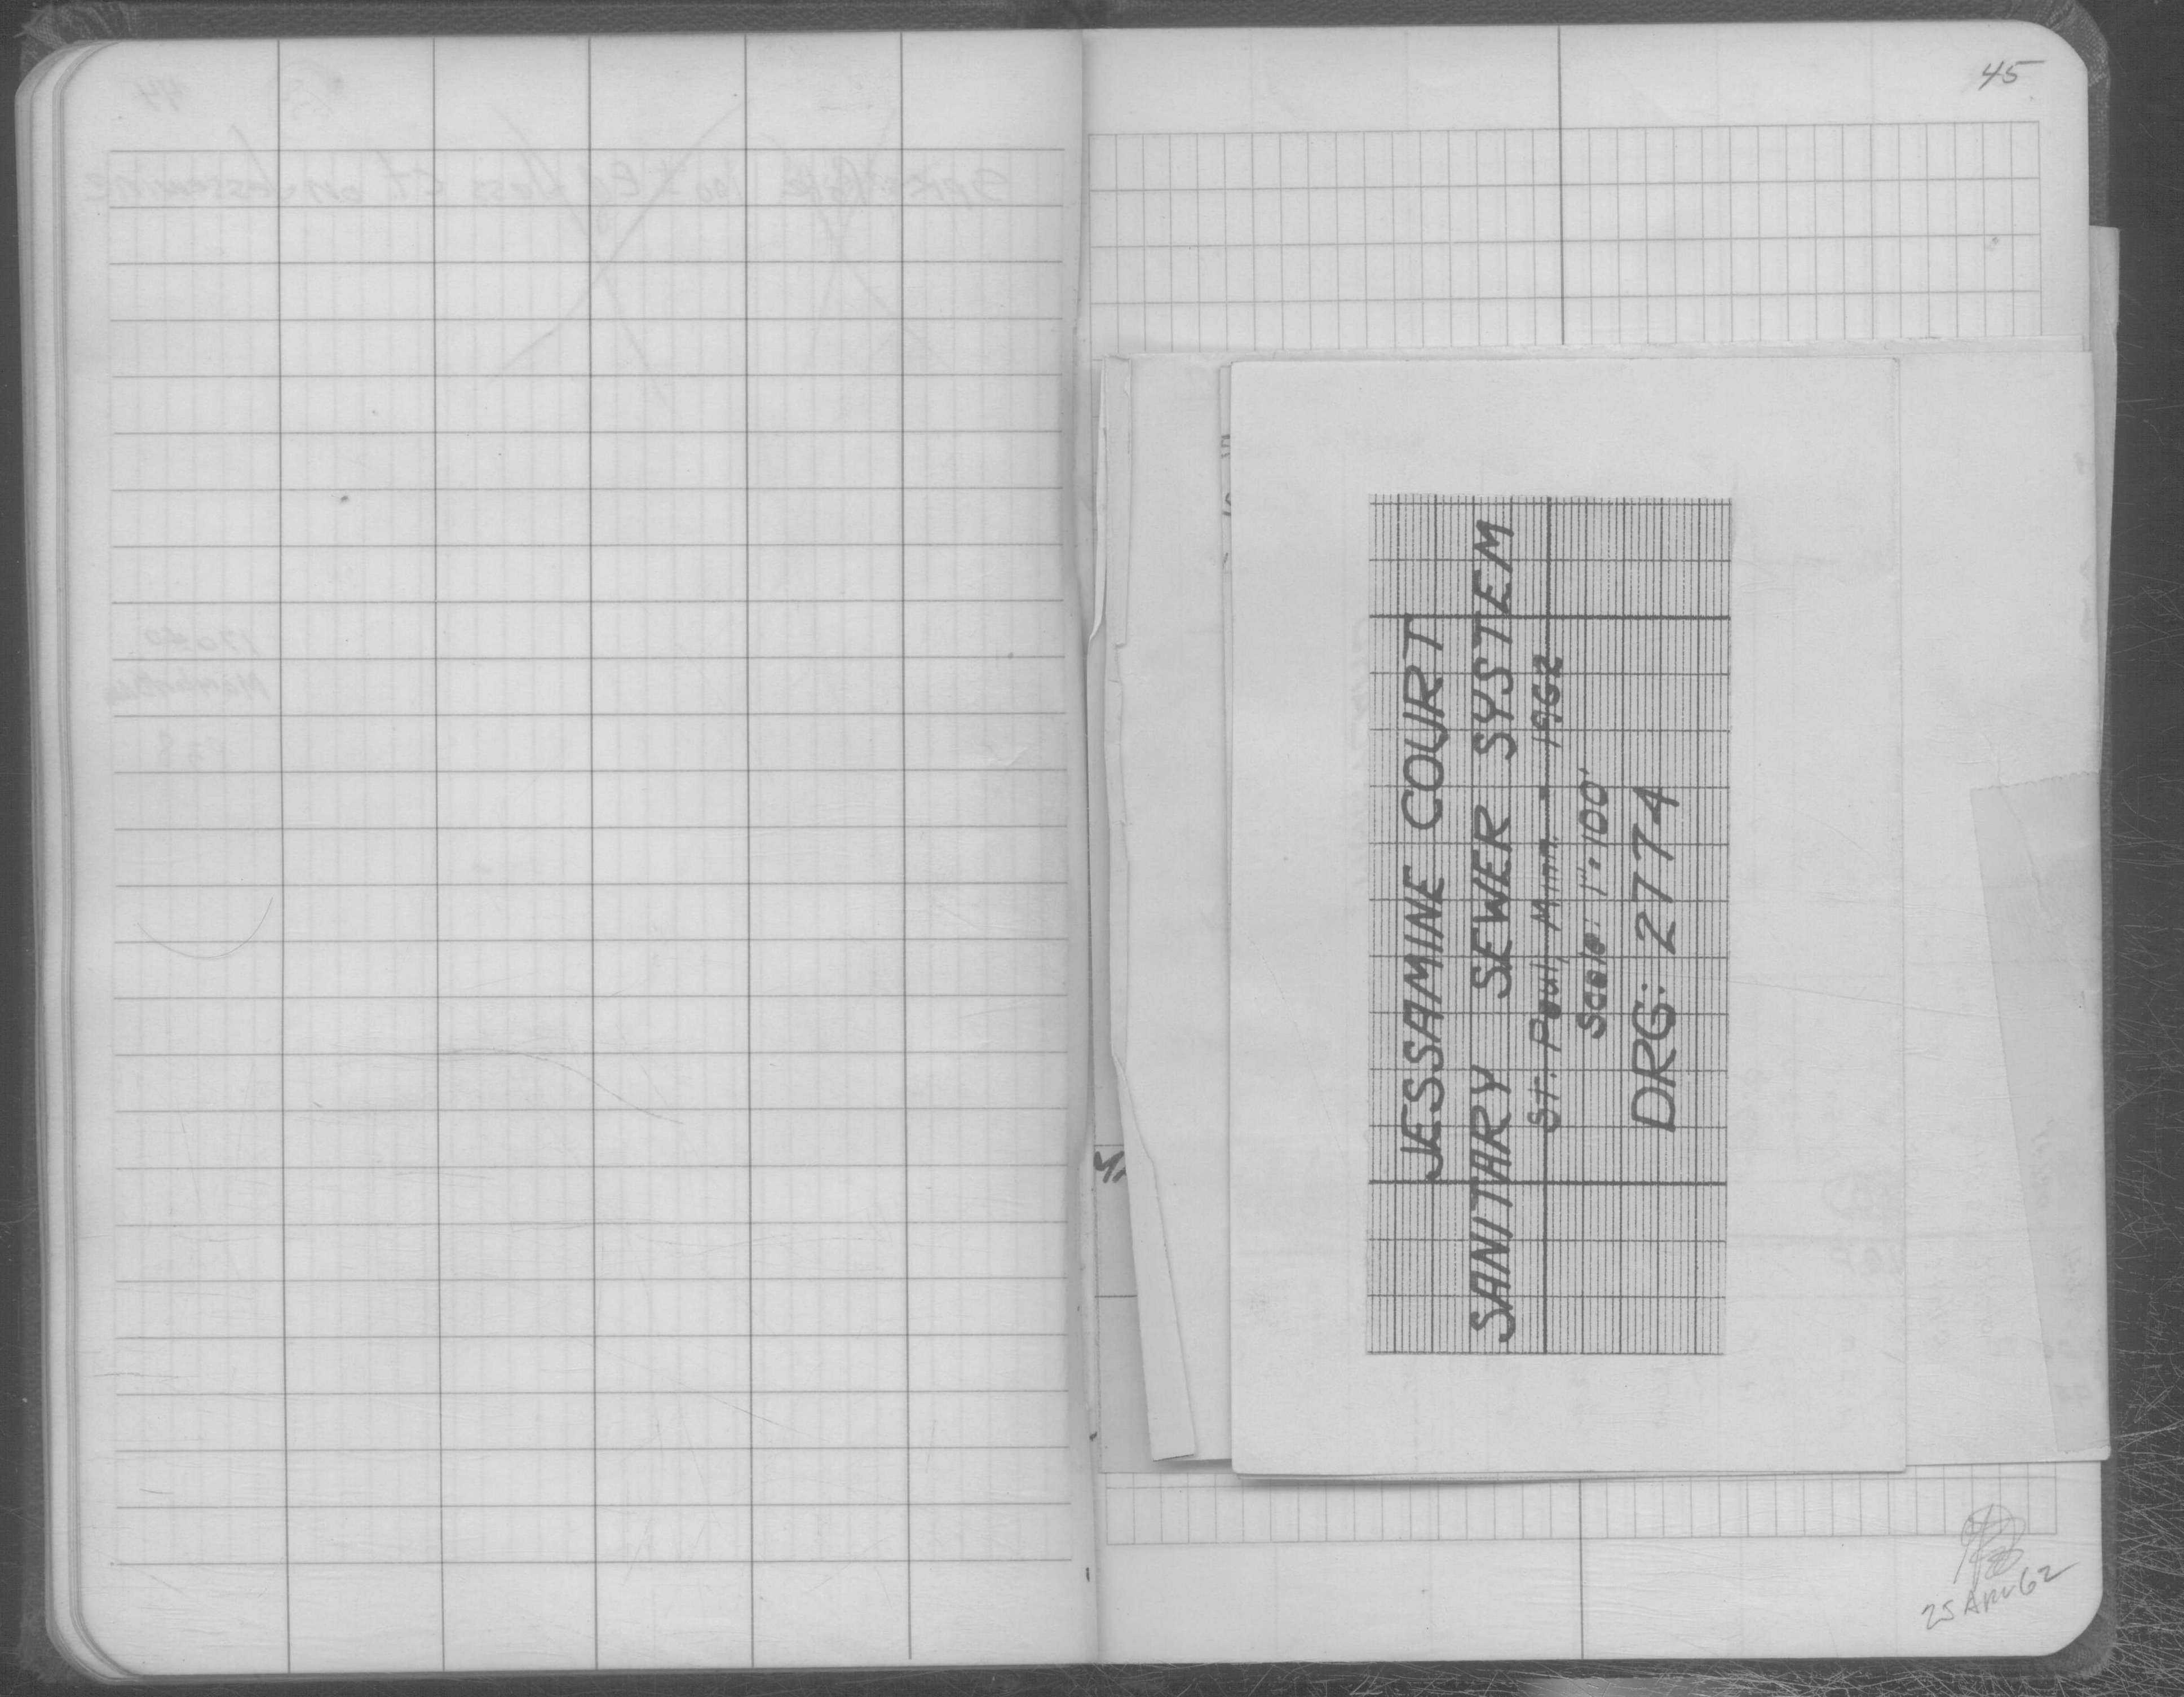 45
JESSAMINE COURT
SANITARY SEWER SYSTEM
St. Paul, Minn. - 1962
Scale: 1"=100'
DRG: 2774
25 Apr 62